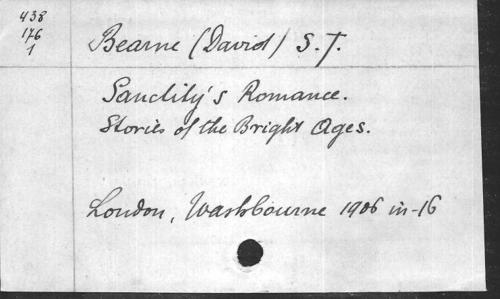 438
176
1
Bearne (David) S.J.
Sanctity's Romance.
Stories of the Bright Ages.
London, Washbourne 1906 in-16